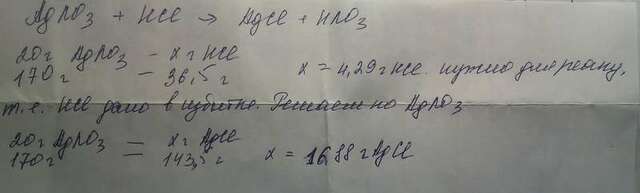 AgNO3 + HCl → AgCl + HNO3
20г AgNO3 - х г HCl
170г - 36,5 г х = 4,29 г HCl нужно для реакц,
т.е. HCl дано в избытке. Решаем по AgNO3
20г AgNO3 = х г AgCl
170г 143,5 г х = 16,88 г AgCl